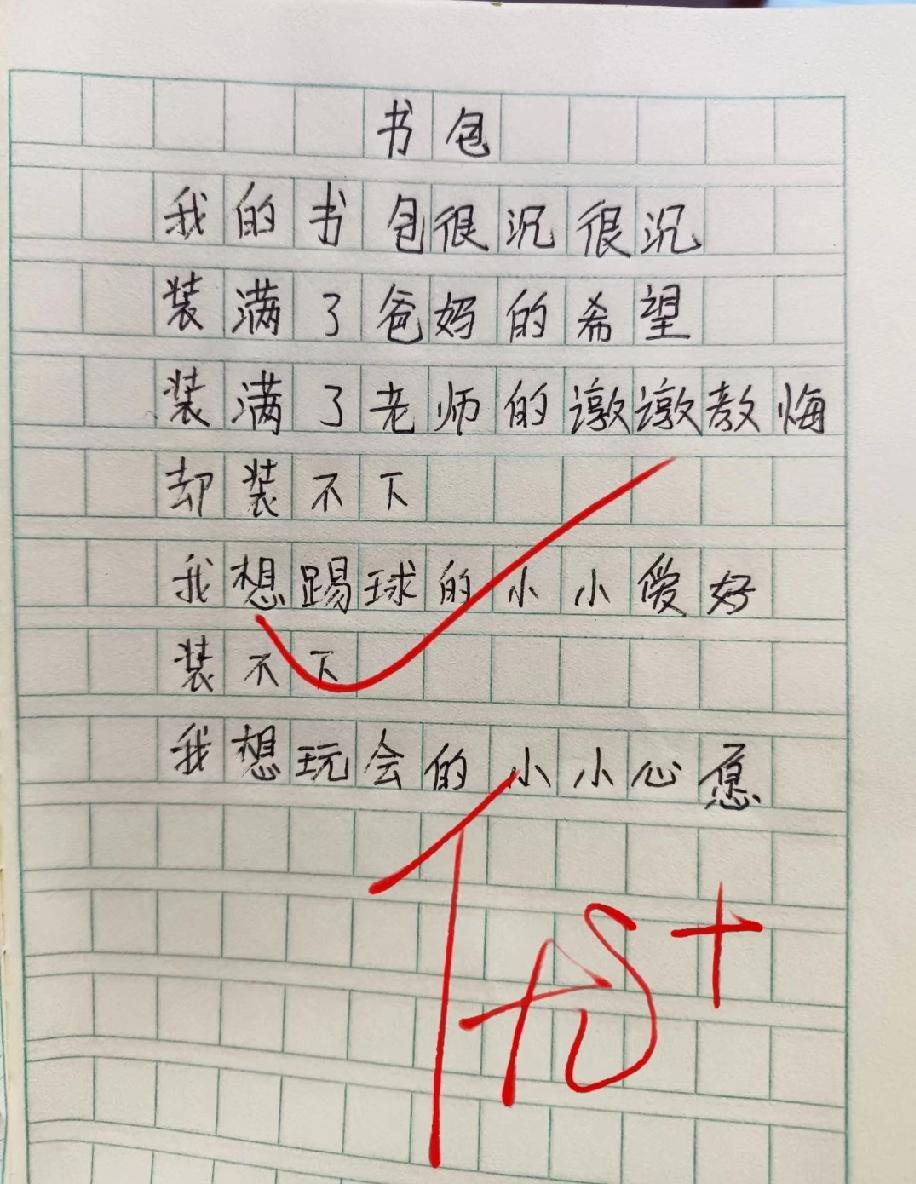 书包
我的书包很沉很沉
装满了爸妈的希望
装满了老师的谆谆教悔
却装不下
我想踢球的小小爱好
装不下
我想玩会的小小心愿